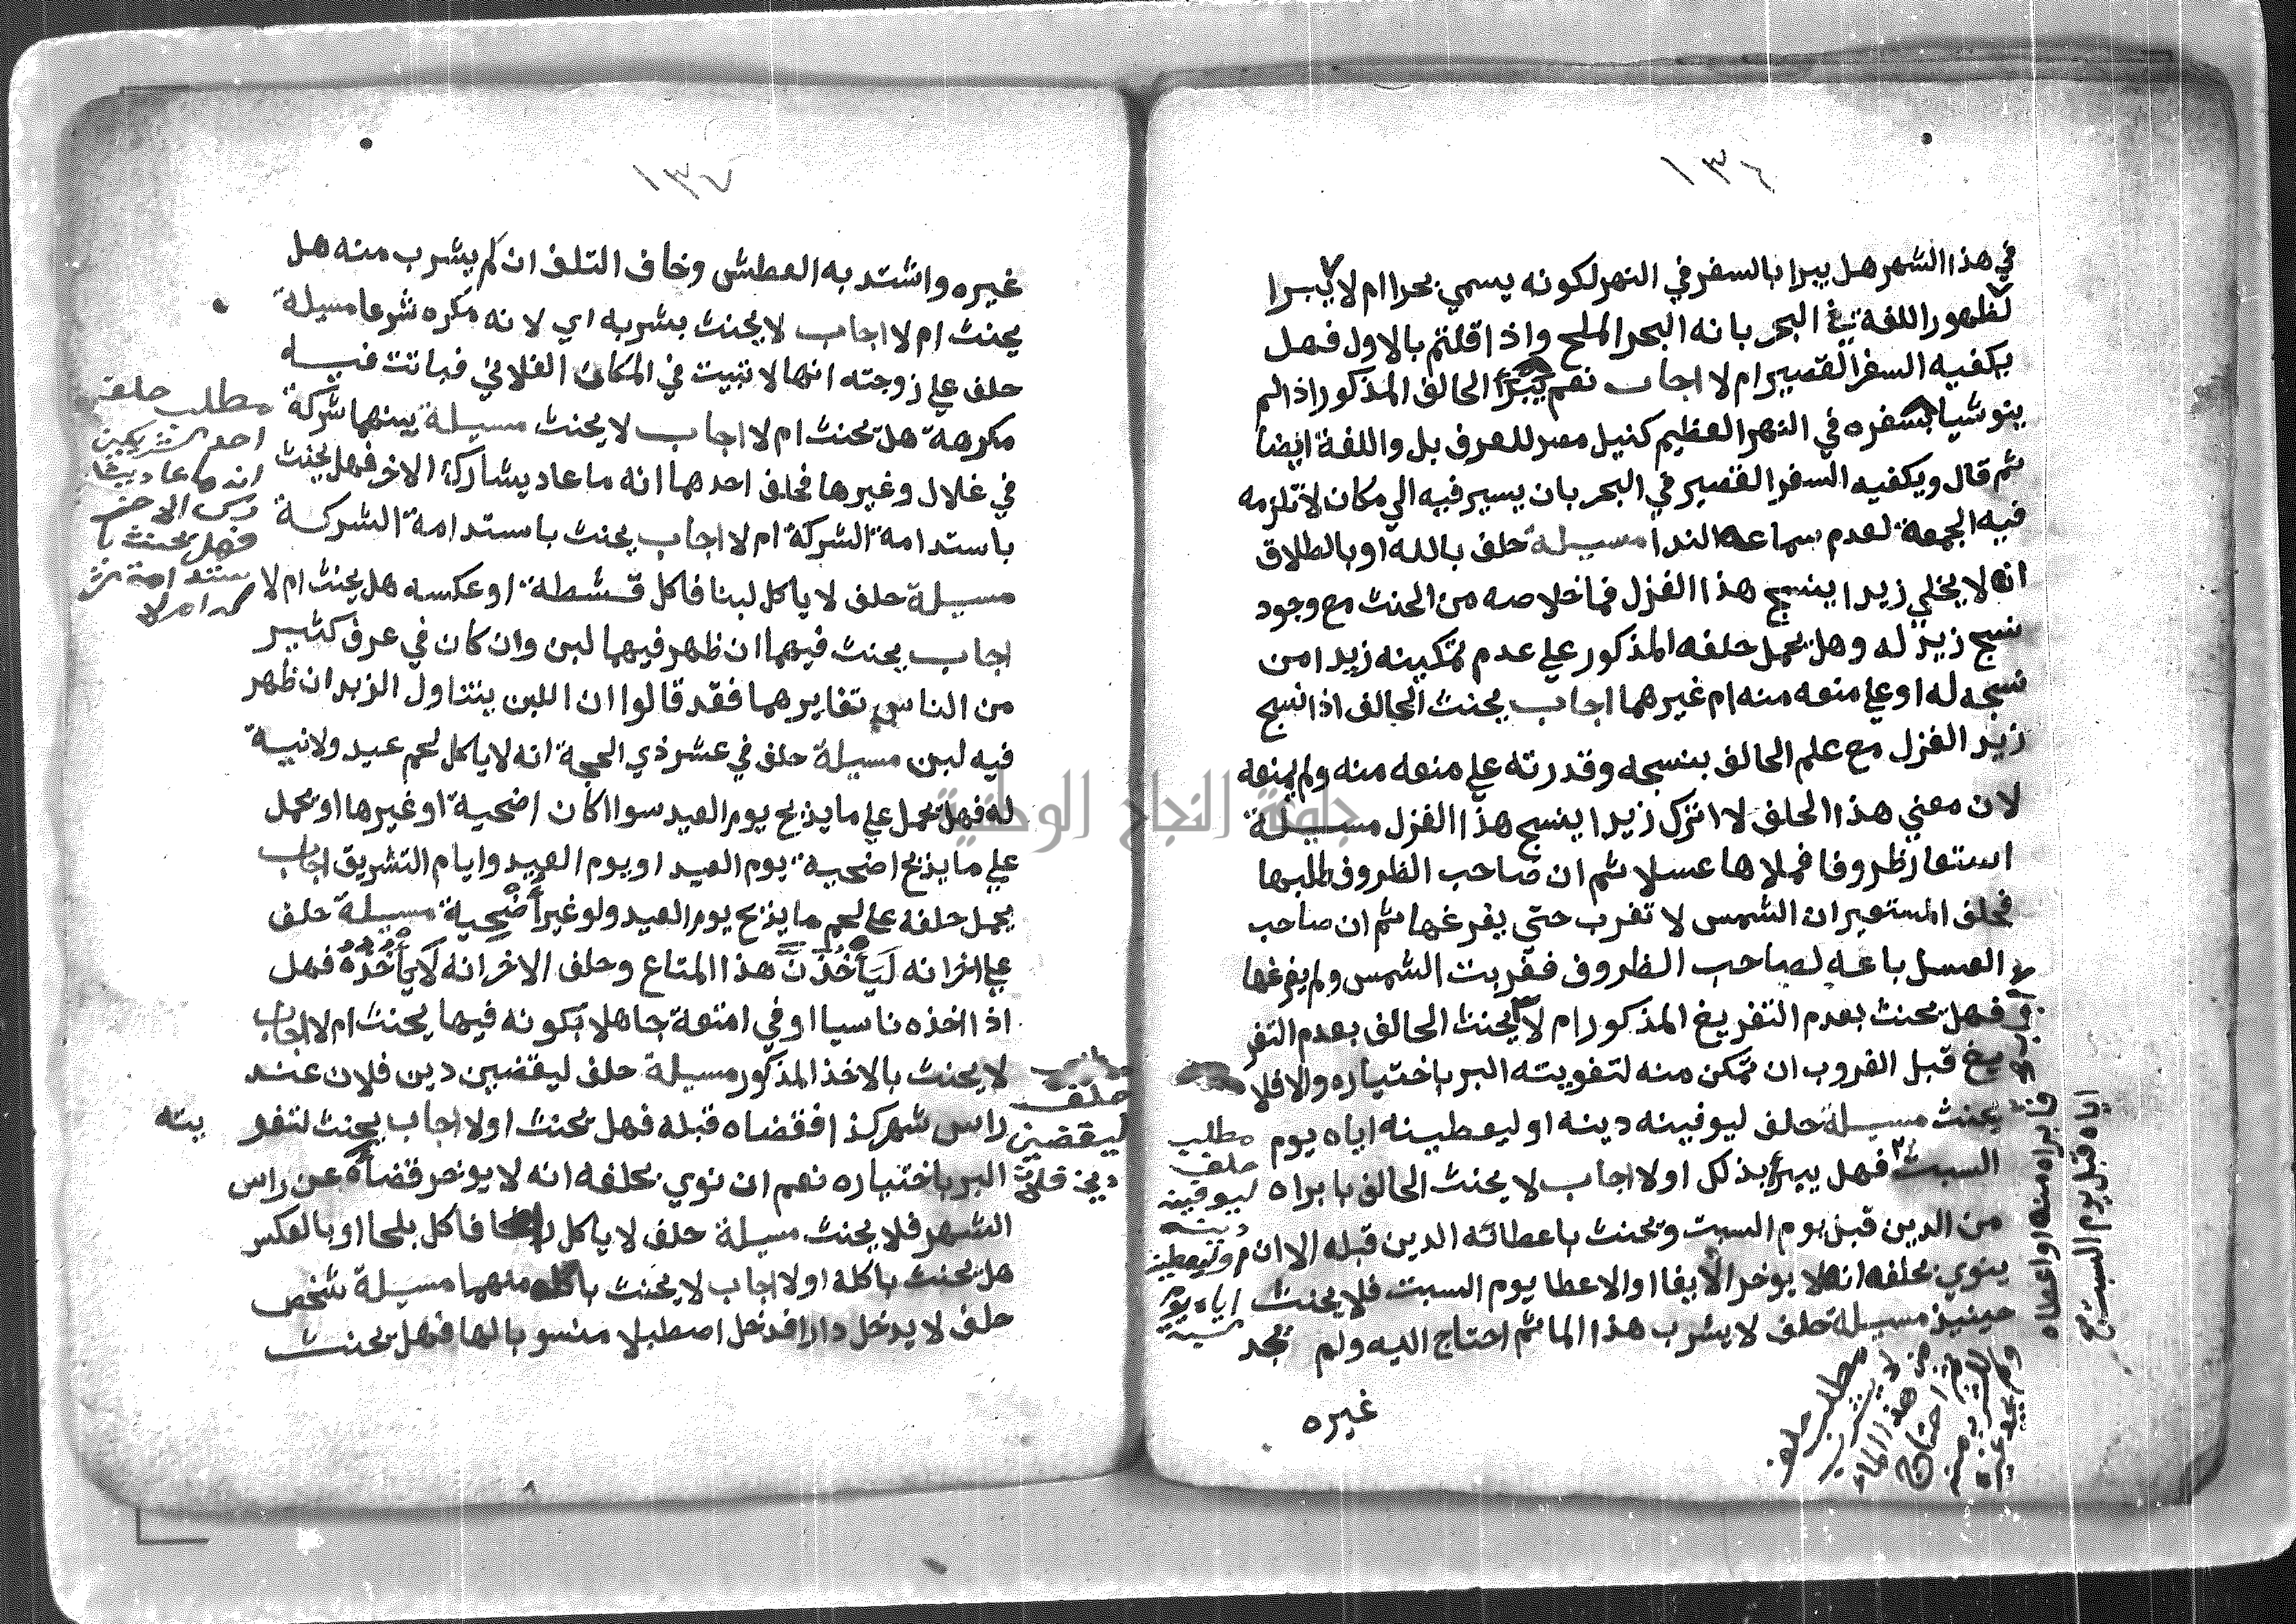 ١٣٤
في هذا الشهر هل يبرا بالسفر في النهر لكونه يسمي بحرا ام لا يبرا
لظهور اللغة في البحر بانه البحر الملح واذا قلتم بالاول فهل
يكفيه السفر القصير ام لا اجاب نعم يبرأ الحالف المذكور اذا لم
ينو شيا بسفره في النهر العظيم كنيل مصر للعرف بل واللغة ايضا
ثم قال ويكفيه السفر القصير في البحر بان يسير فيه الي مكان لا تلزمه
فيه الجمعة لعدم سماعه الندا مسيلة حلف بالله او بالطلاق
انه لا يخلي زيدا ينسج هذا الغزل فما خلاصه من الحنث مع وجود
نسج زيد له وهل يحمل حلفه المذكور علي عدم تمكينه زيدا من
نسجه له او علي منعه منه ام غيرهما اجاب يحنث الحالف اذا نسج
زيد الغزل مع علم الحالف بنسجه وقدرته علي منعه منه ولم يمنعه
لان معني هذا الحلف لا اترك زيدا ينسج هذا الغزل مسيلة
استعار ظروفا فملاها عسلا ثم ان صاحب الظروف طلبها
فحلف المستعير ان الشمس لا تغرب حتي يفرغها ثم ان صاحب
العسل باعه لصاحب الظروف فغربت الشمس ولم يفرغها
فهل يحنث بعدم التفريغ المذكور ام لا يحنث الحالف بعدم التفر
يغ قبل الغروب ان تمكن منه لتفويته البر باختياره والا فلا
يحنث مسيلة حلف ليوفينه دينه او ليعطينه اياه يوم
السبت فهل يبرأ بذلك او لا اجاب لا يحنث الحالف بابراه
من الدين قبل يوم السبت ويحنث باعطائه الدين قبله الا ان
ينوي بحلفه انه لا يوخر الايفا او الاعطا يوم السبت فلا يحنث
حينيذ مسيلة حلف لا يشرب هذا الما ثم احتاج اليه ولم يجد
غيره
مطلب
حلف
ليوفينه
دينه
او ليعطينه
اياه يوم
فابراه منه او اعطاه
اياه قبل يوم السبت صح
مطلب حلف
لا يشرب
هذا الما
احتاج
ولم يجد غيره
١٣٧
غيره واشتد به العطش وخاف التلف ان لم يشرب منه هل
يحنث ام لا اجاب لا يحنث بشربه اي لانه مكره شرعا مسيلة
حلف علي زوجته انها لا تبيت في المكان الفلاني فباتت فيه
مكرهة هل يحنث ام لا اجاب لا يحنث مسيلة بينهما شركة
في غلال وغيرها فحلف احدهما انه ما عاد يشارك الاخر فهل يحنث
باستدامة الشركة ام لا اجاب يحنث باستدامة الشركة
مسيلة حلف لا ياكل لبنا فاكل قشطة او عكسه هل يحنث ام لا
اجاب يحنث فيهما ان ظهر فيهما لبن وان كان في عرف كثير
من الناس تغايرهما فقد قالوا ان اللبن يتناول الزبد ان ظهر
فيه لبن مسيلة حلف في عشر ذي الحجة انه لا ياكل لحم عيد ولا نية
له فهل يحمل علي ما يذبح يوم العيد سوا اكان اضحية او غيرها او يحمل
علي ما يذبح اضحية يوم العيد او يوم العيد وايام التشريق اجاب
يحمل حلفه علي لحم ما يذبح يوم العيد ولو غير أُضْحِية مسيلة حلف
علي اخر انه لَيَأْخُذَنَّ هذا المتاع وحلف الاخر انه لَا يَأْخُذُهُ فهل
اذا اخذه ناسيا او في امتعة جاهلا بكونه فيها يحنث ام لا اجاب
لا يحنث بالاخذ المذكور مسيلة حلف ليقضين دين فلان عند
راس شهر كذا فقضاه قبله فهل يحنث او لا اجاب يحنث لتفو
يته
البر باختياره نعم ان نوي بحلفه انه لا يوخر قضاه عن راس
الشهر فلا يحنث مسيلة حلف لا ياكل فاكل بلحا او بالعكس
هل يحنث باكله او لا اجاب لا يحنث باكله منهما مسيلة شخص
حلف لا يدخل دارا فدخل اصطبلا منسوبا لها فهل يحنث
مطلب حلف
احد الشريكين
انه ما عاد يشا
رك الاخر
فهل يحنث با
ستدامة الشر
كة ام لا
مطلب
حلف
ليقضين
دين فلان
جامعة النجاح الوطنية